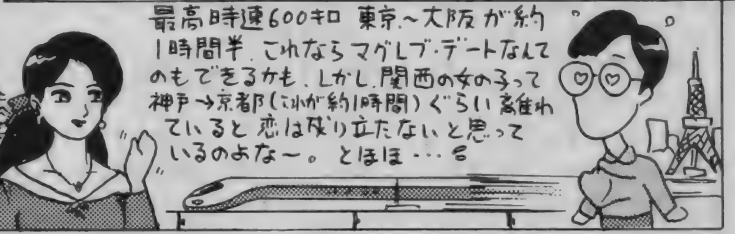 最高時速600キロ 東京~大阪が約
1時間半、これならマグレブ・デートなんて
のもできるかも、しかし、関西の女の子って
神戸→京都(これが約1時間)ぐらい離れ
ていると恋は成り立たないと思って
いるのよな~。とほほ…